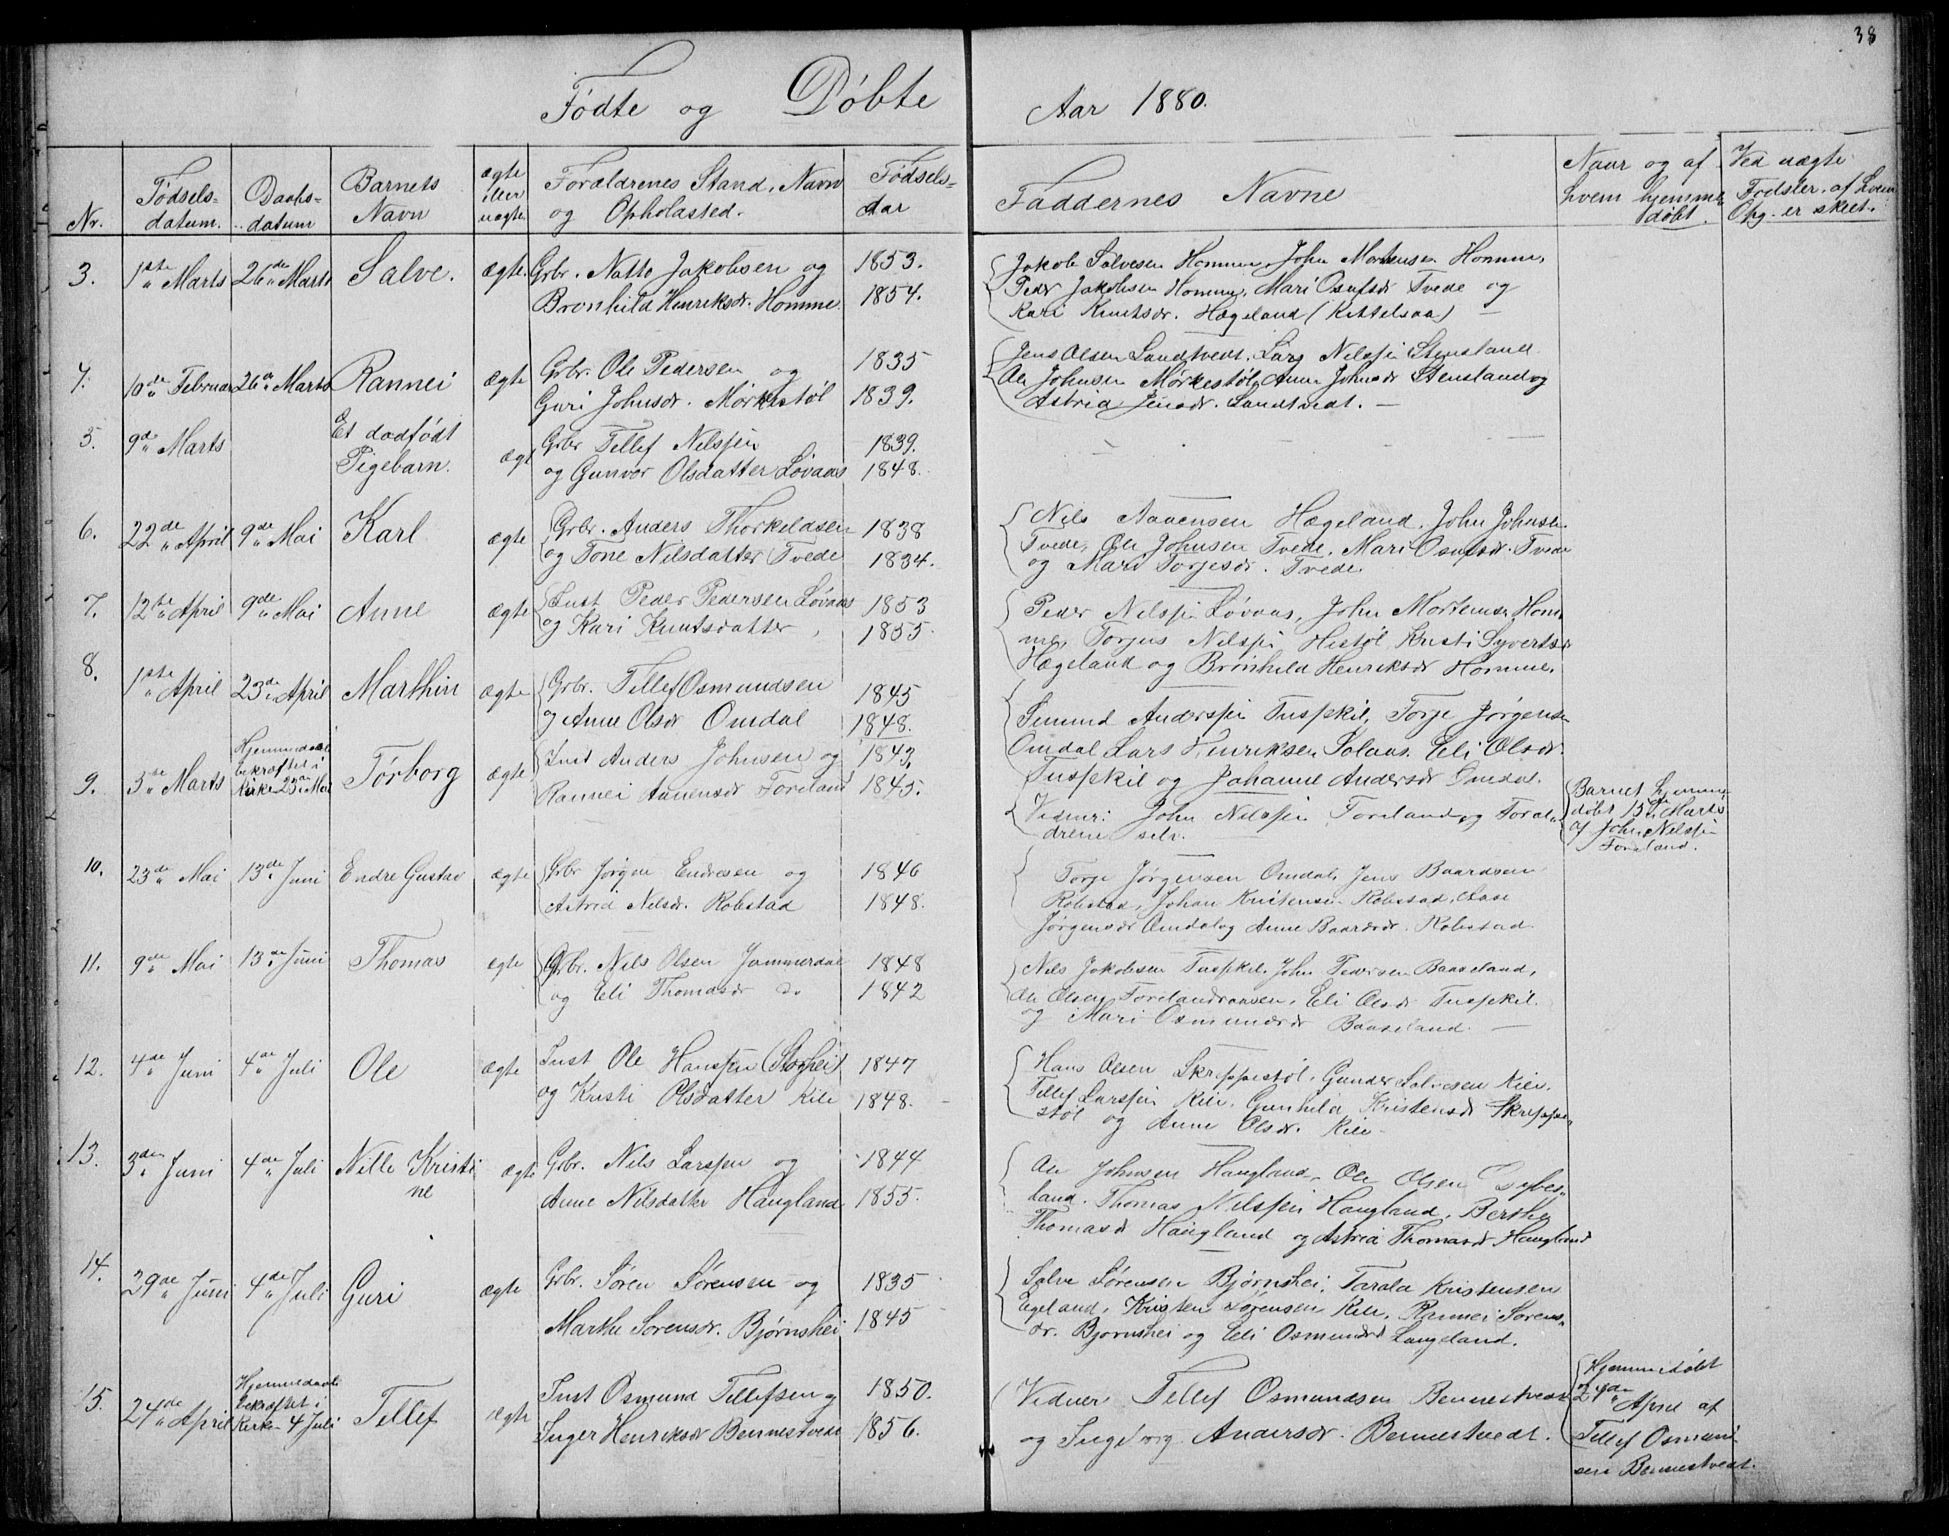 38
Fødte og Døbte Aar 1880.
Nr.
Fødsels-
datum.
Daabs-
datum
Barnets
Navn
ægte
eller
uægte
Forældrenes Stand, Navn
og Opholdsted.
Fødsels-
Aar
Faddernes Navne
Naar og af
hvem hjemme
døbt.
Ved uægte
Fødsler, af hvem
Opg. er skeet.
3. 1ste Marts 26de Marts Salve. ægte. Grbr. Natto Jakobsen og 1853.
Bronhild Henriksdr. Homme 1854.
Jakob Salvesen Homme, John Mortensen Homme,
Peder Jakobsen Homme, Mari Osufsdr Tvede og
Kari Knutsdr. Hægeland (Kittelsaa) —
4. 10de Februar 26de Marts Rannei ægte Grbr. Ole Pedersen og 1835
Guri Johnsdr. Mørkestøl 1839.
Jens Olsen Landtvedt, Lars Nilssen Stensland
Ole Johnsen Mørkestøl, Anne Johnsdr Stensland og
Astrid Jensdr. Landtvedt. —
5. 9de Marts Et dødfødt ægte Grbr Tellef Nilssen 1839.
Pigebarn. og Gunvor Olsdatter Løvaas 1848.
6. 22de April 9de Mai Karl ægte Grbr. Anders Thorkeldsen 1838
og Tone Nilsdatter Tvede 1834.
Nils Aanensen Hægeland, John Johnsen
Tvede, Ole Johnsen Tvede, Mari Osufsdr. Tvede
og Mari Torjesdr. Tvede.
7. 12te April 9de Mai Anne ægte Inst Peder Pedersen Løvaas 1853
og Kari Knutsdatter 1855.
Peder Nilssen Løvaas, John Mortensen Hom-
me, Torjus Nilssen Histøl, Kristi Syvertsdr
Hægeland og Brønhild Henriksdr Homme.
8. 1ste April 23de April Marthin ægte Grbr. Tellef Osmundsen 1845
og Anne Olsdr Omdal 1848.
Omund Anderssen Fuskil, Torje Jørgensen
Omdal Lars Henriksen Solaas, Eli Olsdr.
Fuskil og Johanne Andersdr Omdal.
9. 3de Marts Hjemmedaab
bekræftet i
Kirke 23de Mai
Tørborg ægte Inst Anders Johnsen og 1843,
Rannei Aanensdr Foreland 1845.
Vidner: John Nilssen Foreland og Foræl-
drene selv.
Barnet hjemme
døbt 15de Marts
af John Nilssen
Foreland.
10. 23de Mai 13de Juni Endre Gustav ægte Grbr Jørgen Endresen og 1846
Astrid Nilsdr. Robstad 1848.
Torje Jørgensen Omdal, Jens Baardsen
Robstad, Johan Kristensen Robstad, Aase
Jørgensdr Omdal og Anne Baardsdr. Robstad.
11. 9de Mai 13de Juni Thomas ægte Grbr. Nils Olsen Jammerdal 1848
og Eli Thomasdr do 1842
Nils Jakobsen Fuskil, John Pedersen Baaseland,
Ole Olsen Forelandsaasen, Eli Olsdr Fuskil
og Mari Osmundsdr Baaseland. —
12. 4de Juni 4de Juli Ole ægte Inst Ole Hanssen (Skoghei) 1847
og Kristi Olsdatter Kile 1848.
Hans Olsen Skreppestøl, Gunder Salvesen Kile,
Tellef Larssen Kile, Gunhild Kristensdr Skreppe-
støl og Anne Olsdr. Kile
13. 3de Juni 4de Juli Nille Kristi ægte Grbr. Nils Larssen og 1844
ne Anne Nilsdatter Haugland 1855.
Ole Johnsen Haugland, Ole Olsen Dybes-
land. Thomas Nilssen Haugland, Berthe
Thomasdr Haugland og Astrid Thomasdr Haugland
14. 29de Juni 4de Juli Guri ægte Grbr. Søren Sørensen og 1835
Marthe Sorensdr. Bjørnshei 1845
Salve Sørensen Bjørnshei, Tarald Kristensen
Egeland, Kristen Sørensen Kile, Rannei Sørens-
dr. Bjørnshei og Eli Osmundsdr Langeland.
15. 24de April Hjemmedaab
bekræftet i
Kirken 4 Juli
Tellef ægte Inst Osmund Tellefsen og 1850.
Inger Henriksdr Bennestvedt 1856.
Vidner Tellef Osmundsen Bennestvedt
og Ingeborg Andersdr. Bennestvedt.
Hjemmedøbt
24de April af
Tellef Osmund-
sen Bennestvedt.